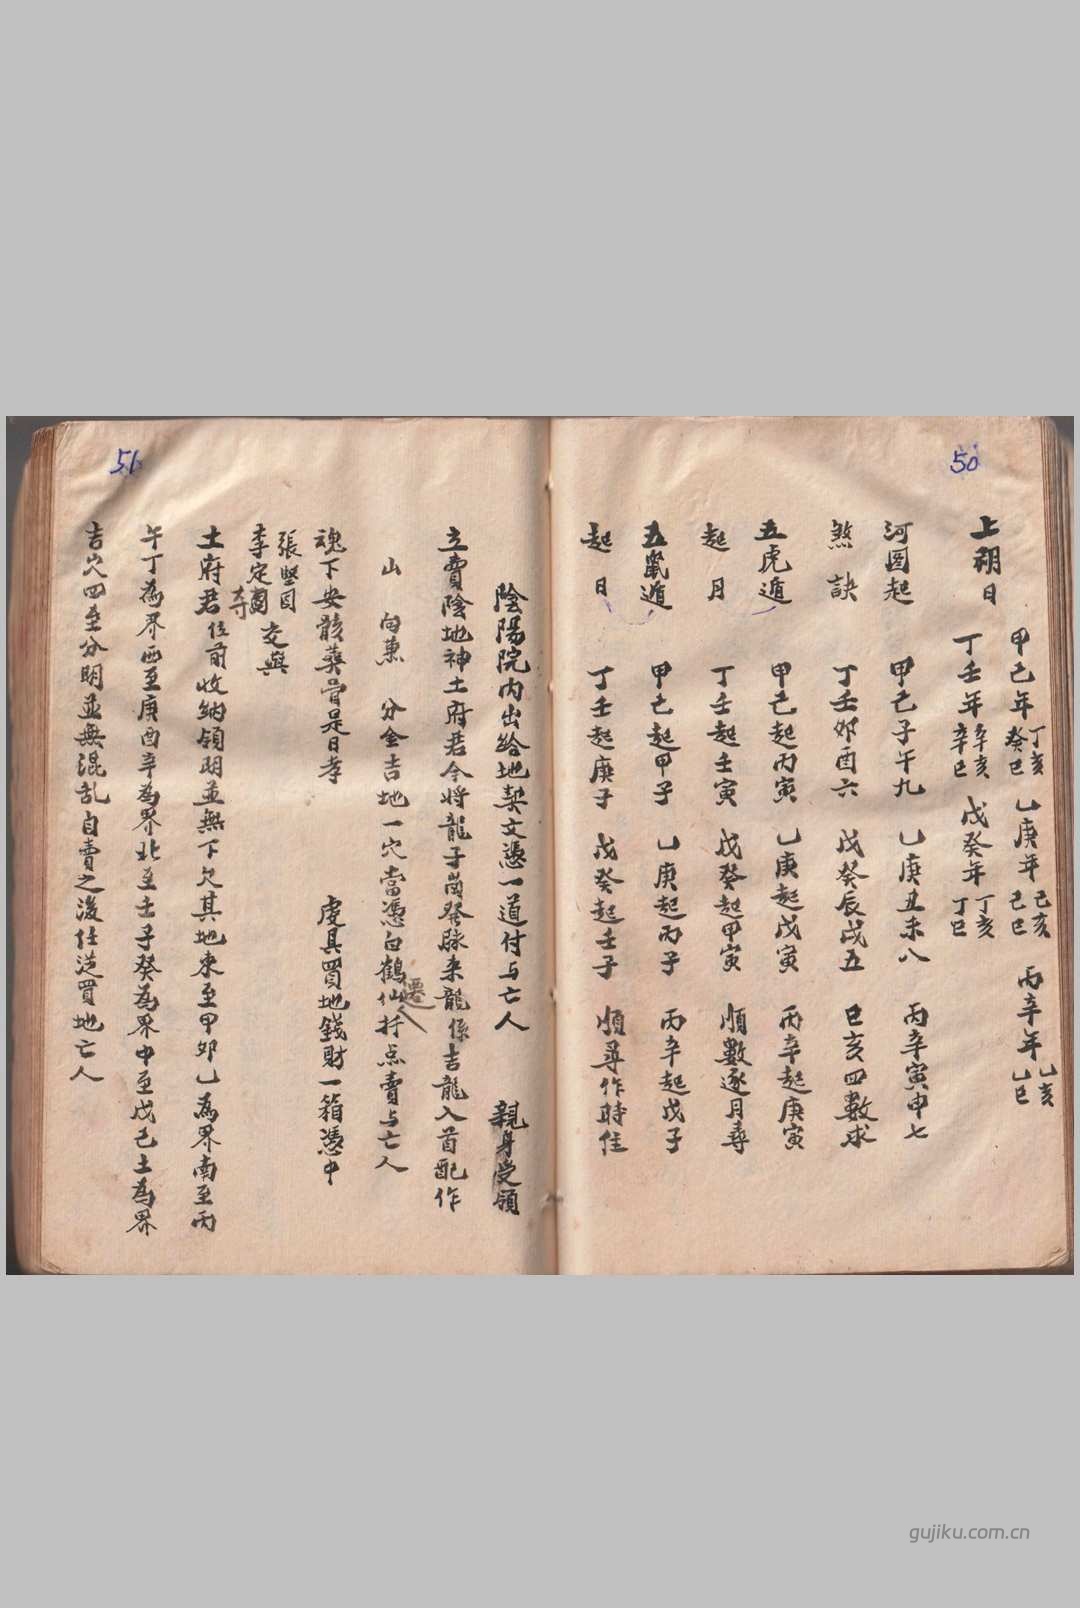 50
上朔日
甲己年 丁亥 癸巳 乙庚年 己亥 己巳 丙辛年 乙亥 乙巳
丁壬年 辛亥 辛巳 戊癸年 丁亥 丁巳
河图起 甲己子午九 乙庚丑未八 丙辛寅申七
煞訣 丁壬卯酉六 戊癸辰戌五 巳亥四數求
五虎遁 甲己起丙寅 乙庚起戊寅 丙辛起庚寅
起月 丁壬起壬寅 戊癸起甲寅 順數逐月尋
五鼠遁 甲己起甲子 乙庚起丙子 丙辛起戊子
起日 丁壬起庚子 戊癸起壬子 順尋作時住
51
陰陽院内出給地契文憑一道付与亡人 親身受領
立賣陰地神土府君今将龍子崗發脉来龍係吉龍入首配作
山 向兼 分金吉地一穴當憑白鶴仙扦点賣与亡人
魂下安骸葬骨是日孝 虔具買地錢財一箱憑中
張堅固
李定國 交與
土府君位前收納領明並無下欠其地東至甲卯乙為界南至丙
午丁為界西至庚酉辛為界北至壬子癸為界中至戊己土為界
吉穴四至分明並無混乱自賣之後任從買地亡人
gujiku.com.cn